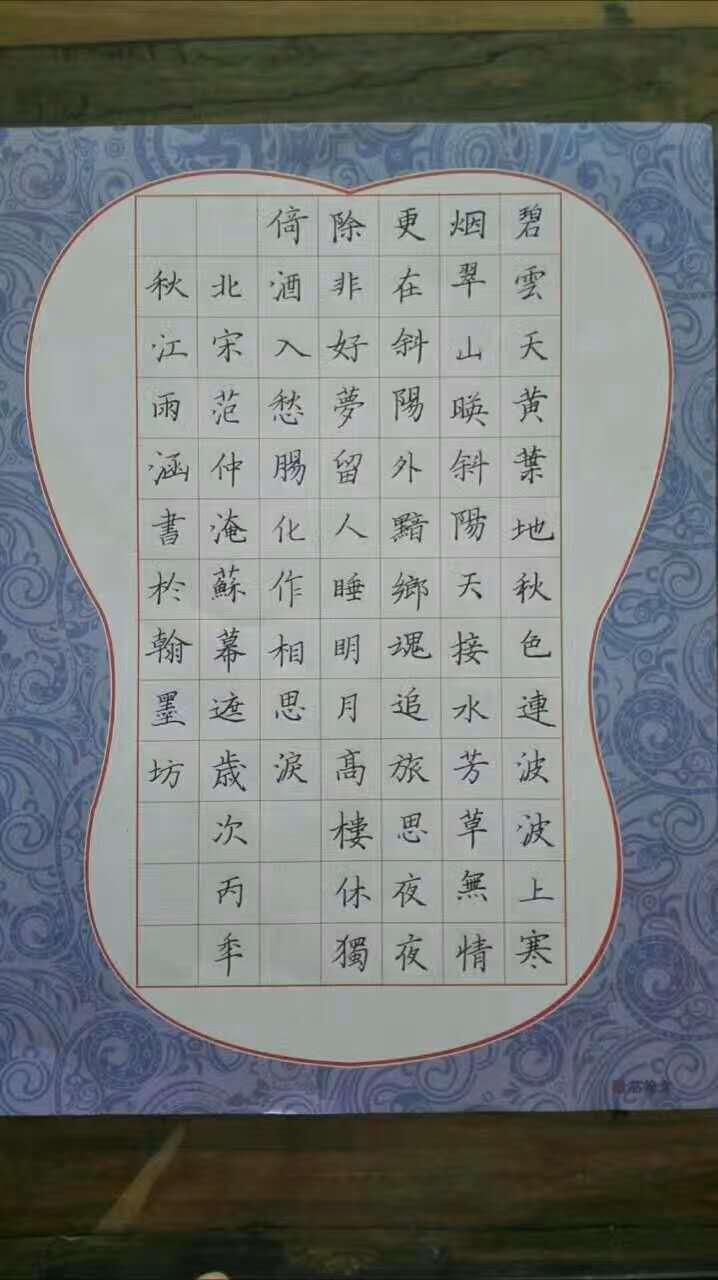 碧雲天黄葉地秋色連波波上寒
烟翠山暎斜陽天接水芳草無情
更在斜陽外黯鄉魂追旅思夜夜
除非好夢留人睡明月高樓休獨
倚酒入愁腸化作相思淚
北宋范仲淹蘇幕遮歲次丙年
秋江雨涵書於翰墨坊